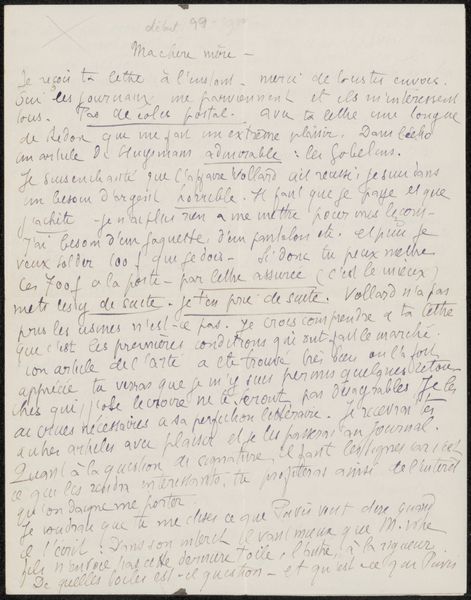 début 99
Ma chère mère –
Je reçois ta lettre à l'instant – merci de tous tes envois.
Oui les journaux me parviennent et ils m'intéressent
tous. Pas de colis postal. avec ta lettre une longue
de Redon qui me fait un extrême plaisir. Dans l'écho
un article de Huysmans admirable : les Gobelins.
Je suis enchanté que l'affaire Vollard ait réussi, je suis dans
un besoin d'argent horrible. Il faut que je paye et que
j'achète – je n'ai plus rien à me mettre pour mes leçons –
J'ai besoin d'une jaquette, d'un pantalon etc. et puis je
veux solder 100 f que je dois – Si donc tu peux mettre
ces 700 f à la poste – par lettre assurée (c'est le mieux)
mets les y de suite. je t'en prie de suite. Vollard n'a pas
pris les usines n'est-ce pas. Je crois comprendre à ta lettre
que c'est les premières conditions qui ont fait le marché.
ton article de l'arte a été trouvé très bien on l'a fort
apprécié tu verras que je m'y suis permis quelques retou
ches qui, j'ose le croire ne te seront pas désagréables Je les
ai crues nécessaires à sa perfection littéraire. Je recevrai tes
autres articles avec plaisir et je les passerai au journal.
Quant à la question de signature, il faut les signer car c'est
ce qui les rendra intéressants, tu profiteras ainsi de l'intérêt
qu'on daigne me porter.
Je voudrais que tu me dises ce que Puvis veut dire quand
il t'écrit : Dans son interêt il vaut mieux que M. votre
fils n'envoie pas cette dernière Toile, l'autre, à la rigueur
De quelles toiles est-il question – et qu'est-ce que Puvis